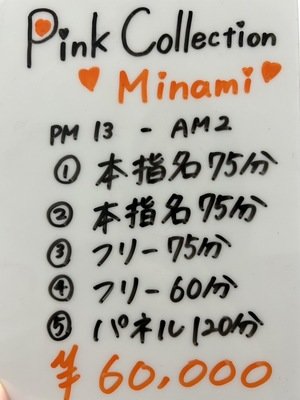 Pink Collection
Minami
PM 13 - AM2
① 本指名75分
② 本指名75分
③ フリー75分
④ フリー60分
⑤ パネル120分
¥60,000